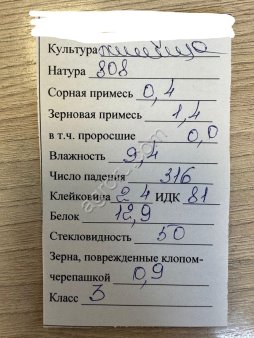 Культура пшеница
Натура 808
Сорная примесь 0,4
Зерновая примесь 1,4
в т.ч. проросшие 0,0
Влажность 9,4
Число падения 316
Клейковина 24 ИДК 81
Белок 12,9
Стекловидность 50
Зерна, поврежденные клопом-
черепашкой 0,9
Класс 3